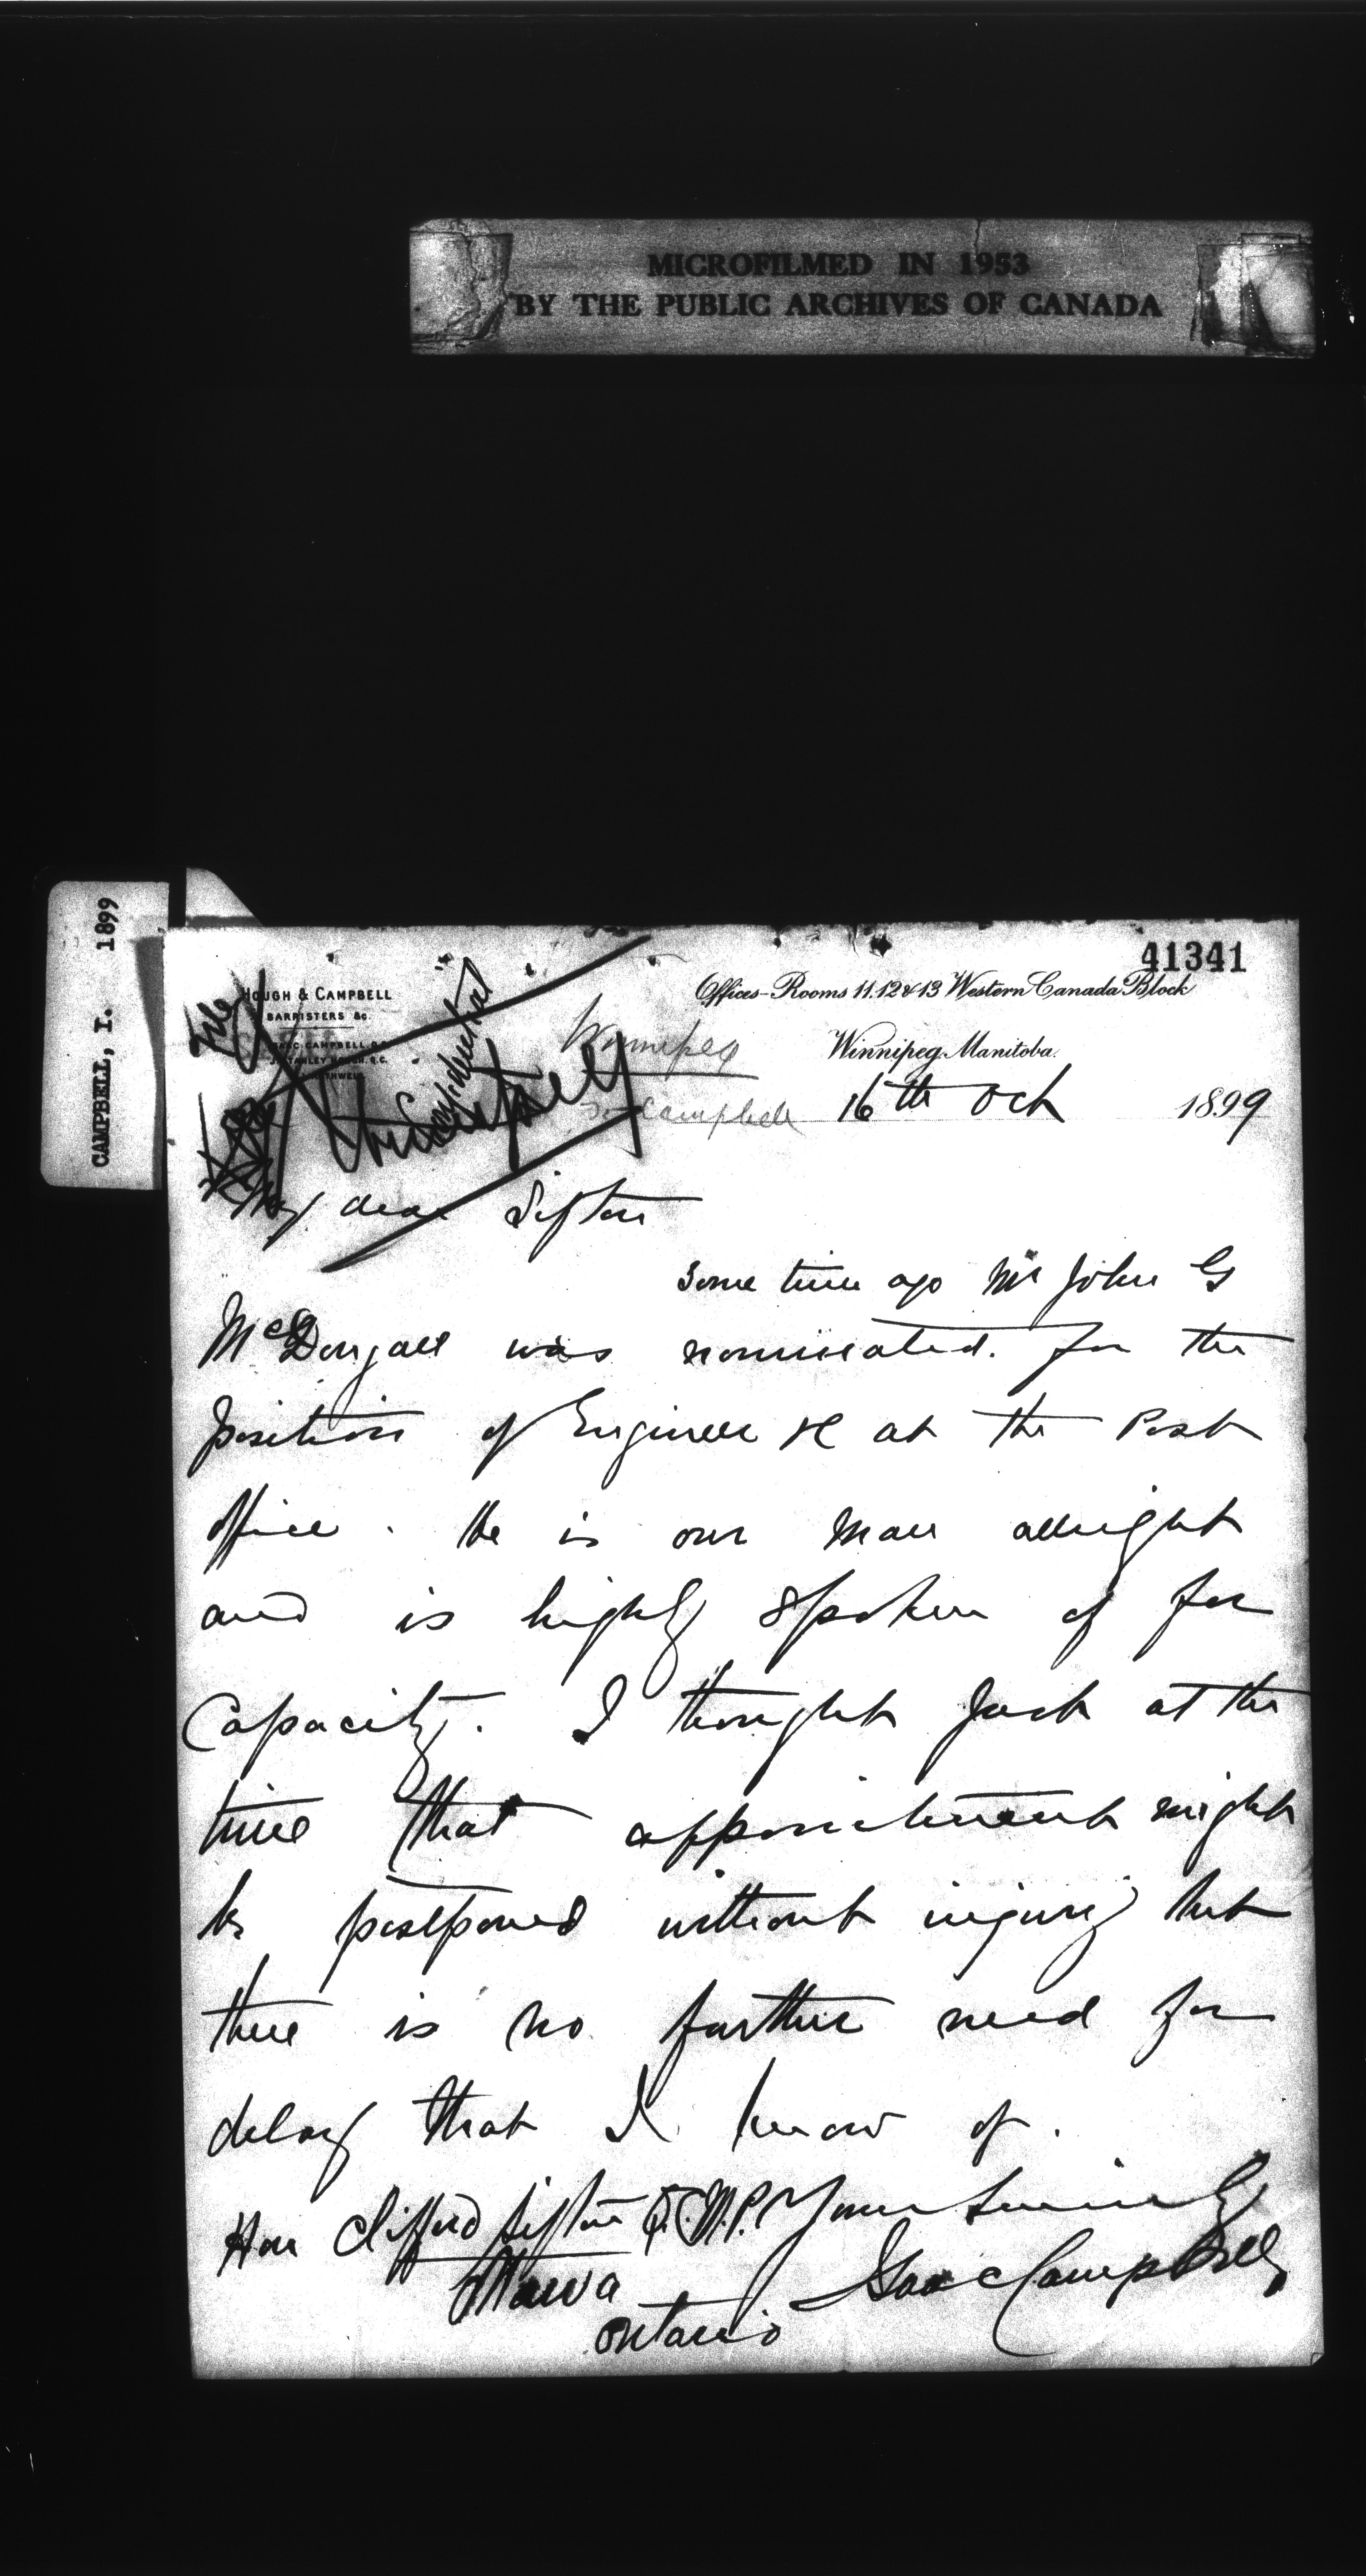 MICROFILMED IN 1953
BY THE PUBLIC ARCHIVES OF CANADA
CAMPBELL, I. 1899
41341
HOUGH & CAMPBELL
BARRISTERS &c.
ISAAC CAMPBELL, Q.C.
J. STANLEY HOUGH, Q.C.
Offices-Rooms 11.12 & 13 Western Canada Block
Winnipeg
Winnipeg, Manitoba.
Campbell
16th Oct 1899
File
My dear Sifton
Some time ago Mr John G
McDougall was nominated for the
position of Engineer &c at the Post
office. He is our man allright
and is highly spoken of for
capacity. I thought Jack at the
time that appointment might
be postponed without injury but
there is no further need for
delay that I know of.
Yours Sincerely
Isaac Campbell
Hon Clifford Sifton Q.C. M.P.
Ottawa
Ontario